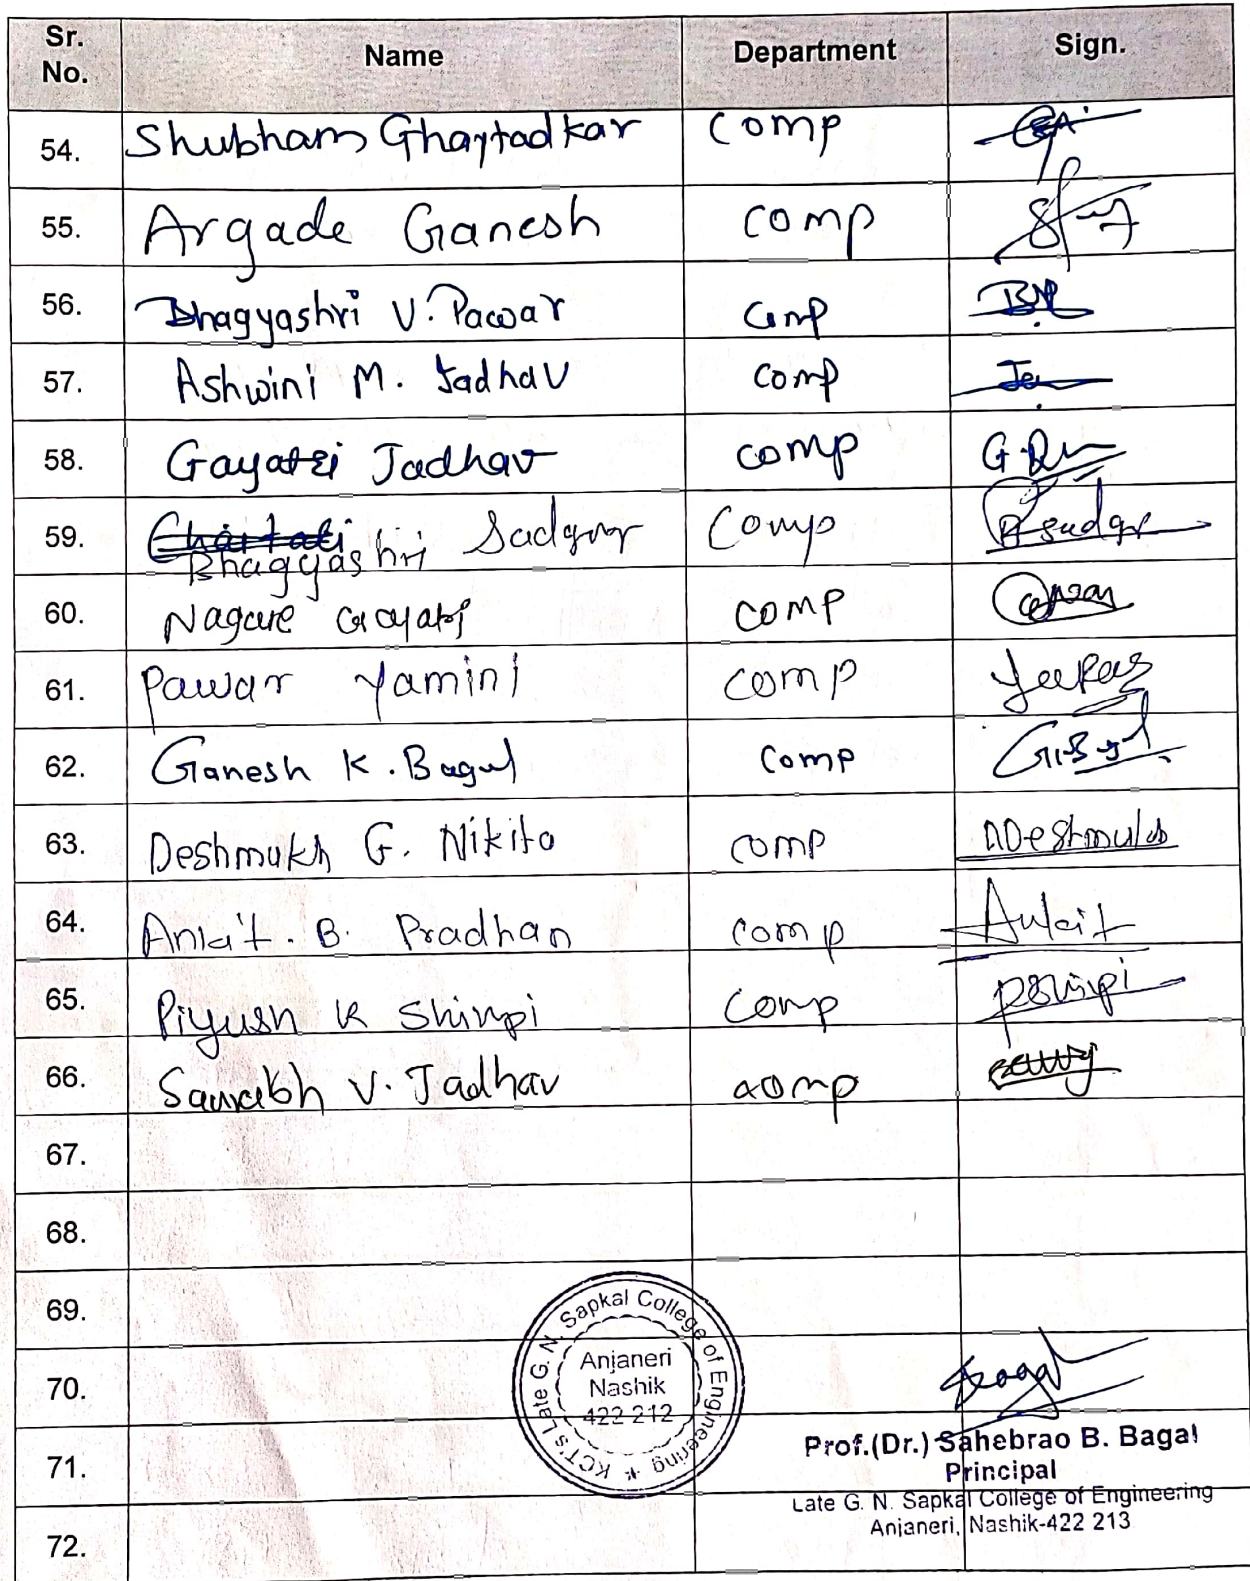 Sr. No. Name Department Sign.
54. Shubham Ghaytadkar comp
55. Argade Ganesh comp
56. Bhagyashri V. Pawar comp
57. Ashwini M. Jadhav comp
58. Gayatri Jadhav comp G.R
59. Chaitali Bhagyashri Sadgur Comp
60. Nagare Gayatri comp
61. Pawar Yamini comp
62. Ganesh K. Bagul comp
63. Deshmukh G. Nikita comp NDeshmukh
64. Ankit. B. Pradhan comp Ankit
65. Piyush K Shimpi Comp PShimpi
66. Saurabh V. Jadhav comp
67.
68.
69.
70.
71.
72.
KCT's Late G. N. Sapkal College of Engineering
Anjaneri
Nashik
422 212
Prof.(Dr.) Sahebrao B. Bagal
Principal
Late G. N. Sapkal College of Engineering
Anjaneri, Nashik-422 213